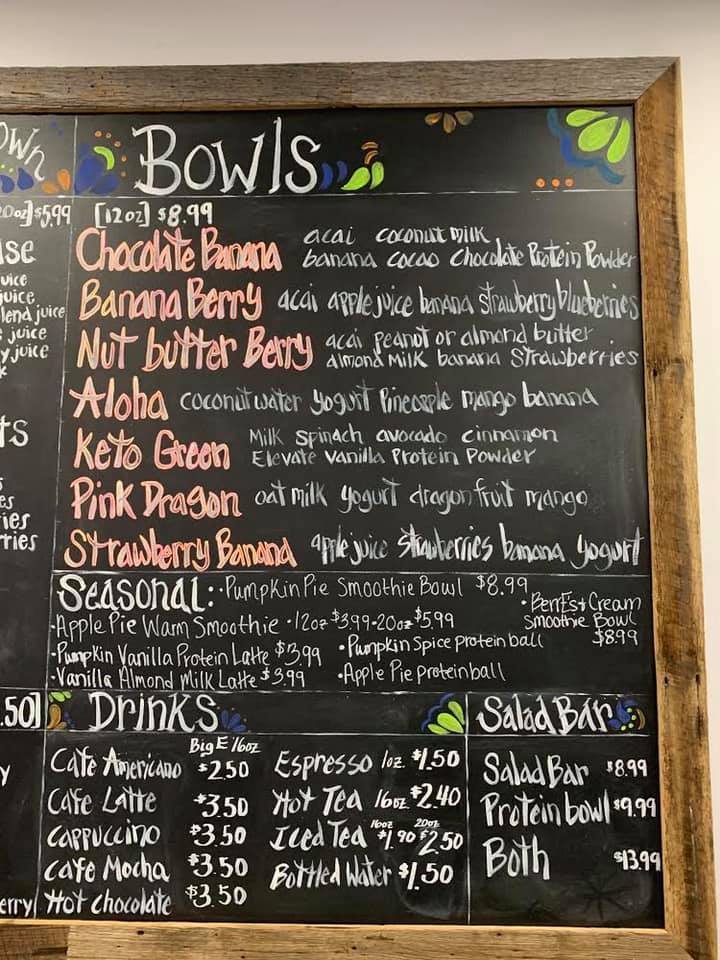 own
20oz] $5.99
juice
juice
lend juice
juice
y juice
ts
es
ies
rries
.50]
y
erry
Bowls
[12oz] $8.99
Chocolate Banana acai coconut milk
banana cacao chocolate Protein Powder
Banana Berry acai apple juice banana strawberry blueberries
Nut butter Berry acai peanut or almond butter
almond Milk banana Strawberries
Aloha coconut water yogurt Pineapple mango banana
Keto Green Milk spinach avocado cinnamon
Elevate vanilla Protein Powder
Pink Dragon oat milk yogurt dragon fruit mango
Strawberry Banana apple juice strawberries banana yogurt
Seasonal: • Pumpkin Pie Smoothie Bowl $8.99
• Apple Pie Warm Smoothie • 12oz $3.99 - 20oz $5.99
• Pumpkin Vanilla Protein Latte $3.99
• Vanilla Almond Milk Latte $3.99
• Pumpkin Spice protein ball
• Apple Pie protein ball
• Smoothie Bowl
$8.99
Drinks
Big E 16oz
Cafe Americano $2.50
Cafe Latte $3.50
Cappuccino $3.50
Cafe Mocha $3.50
Hot chocolate $3.50
Espresso 1oz. $1.50
Hot Tea 16oz $2.40
Iced Tea 16oz $1.90 20oz $2.50
Bottled Water $1.50
Salad Bar
Salad Bar $8.99
Protein bowl $9.99
Both $13.99